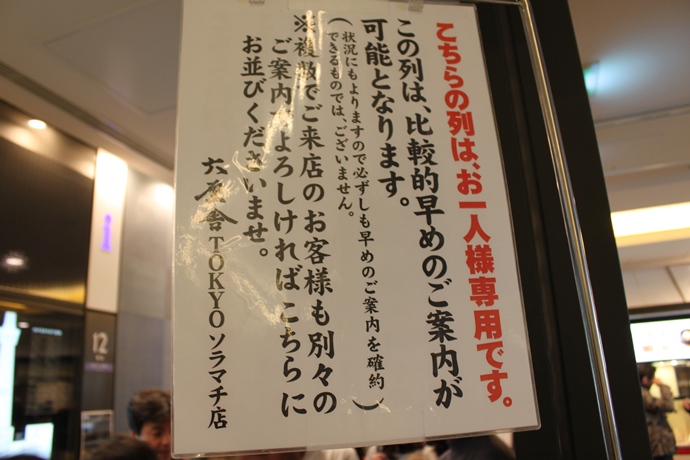 こちらの列は、お一人様専用です。
この列は、比較的早めのご案内が
可能となります。
(状況にもよりますので必ずしも早めのご案内を確約
できるものでは、ございません。)
※複数でご来店のお客様も別々の
ご案内でよろしければこちらに
お並びくださいませ。
六厘舎TOKYOソラマチ店
i
12